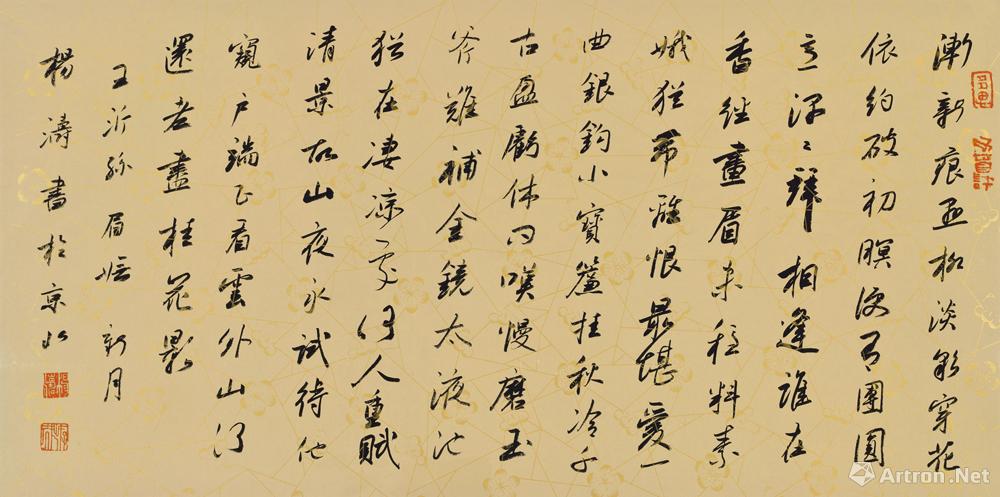 漸新痕懸柳淡彩穿花
依約破初暝便有團圓
意深深拜相逢誰在
香徑畫眉未穩料素
娥猶帶離恨最堪愛一
曲銀鉤小寶簾掛秋冷千
古盈虧休問嘆慢磨玉
斧難補金鏡太液池
猶在淒涼處何人重賦
清景故山夜永試待他
窺戶端正看雲外山河
還老盡桂花影
王沂孫眉嫵新月
楊濤書於京北
Artron.Net